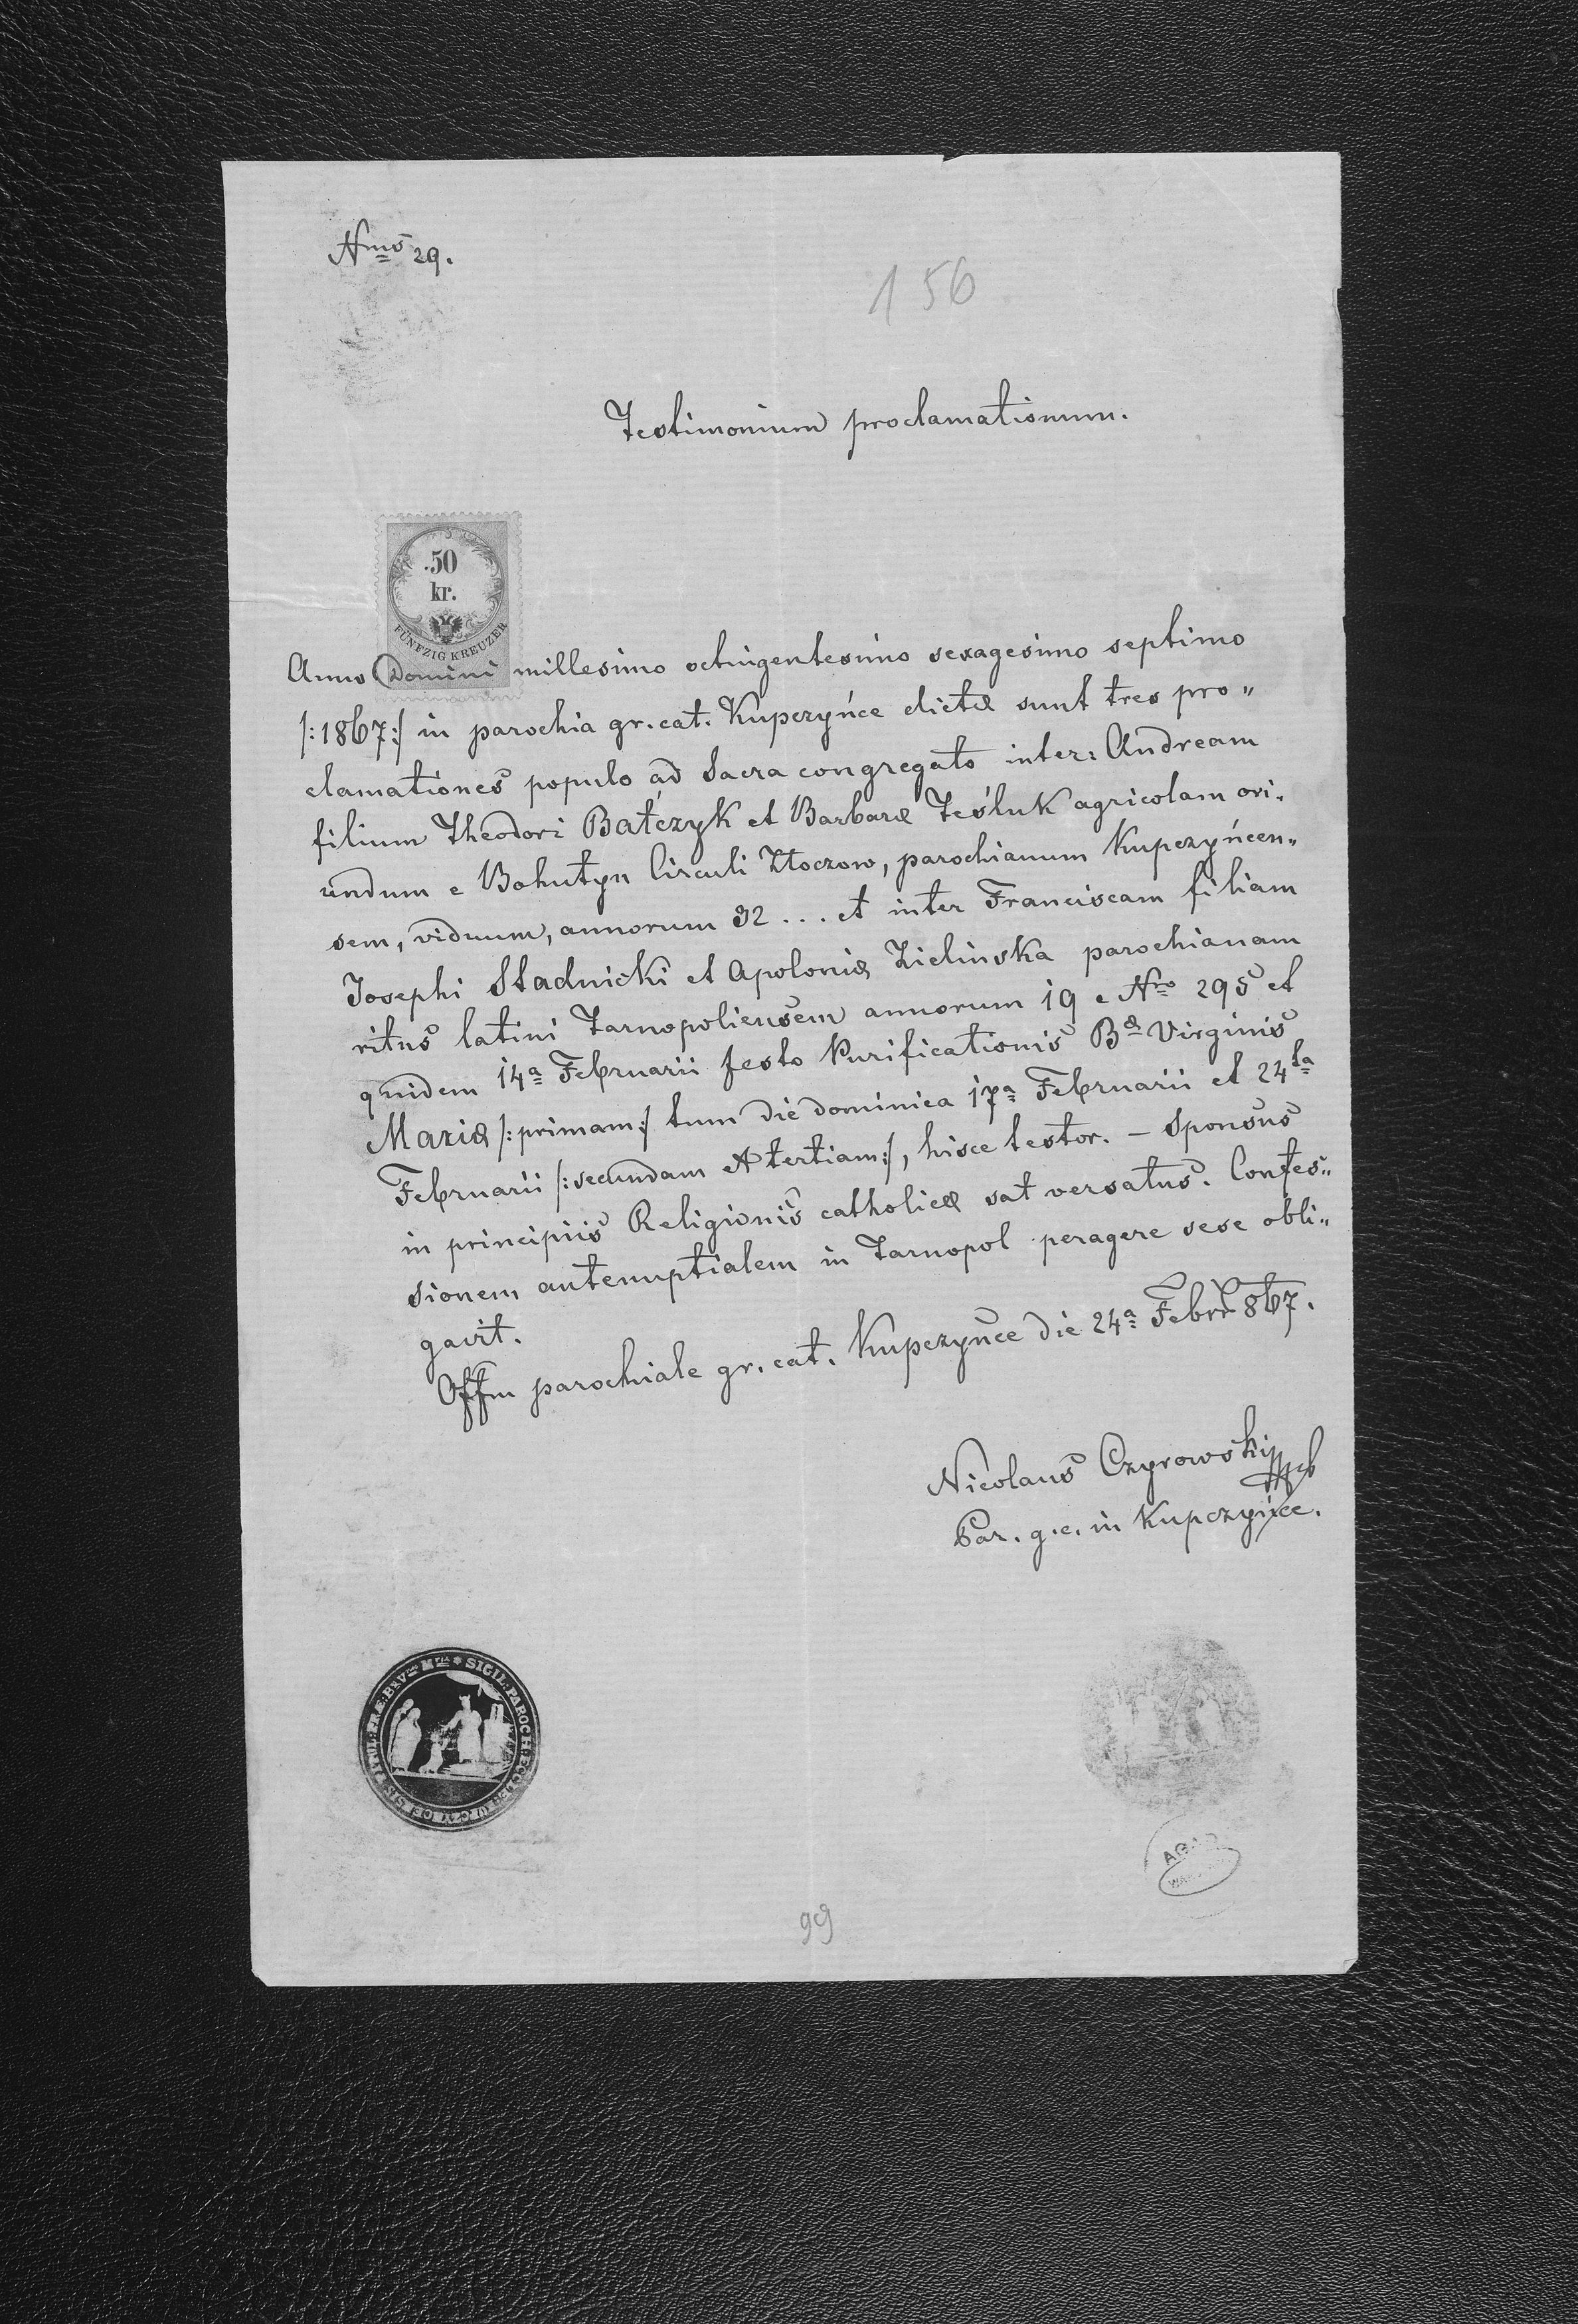 Nrus 29.
156
Testimonium proclamationum.
50
kr.
FÜNFZIG KREUZER
Anno Domini millesimo octingentesimo sexagesimo septimo
/:1867:/ in parochia gr. cat. Kupczyńce dictæ sunt tres pro„
clamationes populo ad Sacra congregato inter: Andream
filium Theodori Bałczyk et Barbaræ Teśluk agricolam ori„
undum e Bohutyn Circuli Złoczow, parochianum Kupczyńcen„
sem, viduum, annorum 32 ... et inter Franciscam filiam
Josephi Stadnicki et Apoloniæ Zielinska parochianam
ritus latini Tarnopoliensem annorum 19 e Nro 295 et
quidem 14a Februarii festo Purificationis Bæ Virginis
Mariæ /:primam:/ tum die dominica 17a Februarii et 24ta
Februarii /:secundam et tertiam:/, hisce testor. – Sponsus
in principiis Religionis catholicæ sat versatus. Confes„
sionem antenuptialem in Tarnopol peragere sese obli„
gavit.
Offm parochiale gr. cat. Kupczyńce die 24a Febr 867.
Nicolaus Czyrowski
Par. g. c. in Kupczyńce.
SIGIL. PAROCH
AGAD
99